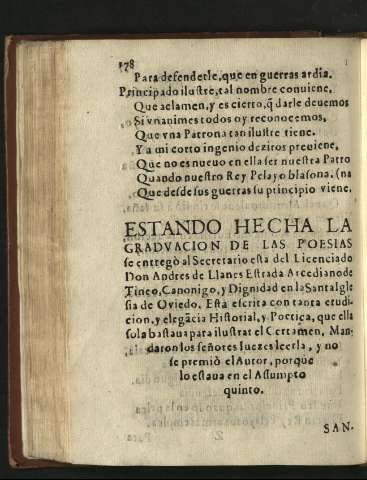 178
Para defenderle, que en guerras ardia.
Principado ilustre, tal nombre conviene,
Que aclamen, y es cierto, q̃ darle deuemos
Si vnanimes todos oy reconocemos,
Que vna Patrona tan ilustre tiene.
Y a mi corto ingenio deziros preuiene,
Que no es nueuo en ella ser nuestra Patro
Quando nuestro Rey Pelayo blasona. (na
Que desde sus guerras su principio viene.
ESTANDO HECHA LA
GRADVACION DE LAS POESIAS
se entregò al Secretario esta del Licenciado
Don Andres de Llanes Estrada Arcediano de
Tineo, Canonigo, y Dignidad en la Santa Igle
sia de Oviedo. Està escrita con tanta erudi-
cion, y elegãcia Historial, y Poetica, que ella
sola bastaua para ilustrar el Certamen. Man-
daron los señores Iuezes leerla, y no
se premiò el Autor, porque
lo estaua en el Assumpto
quinto.
SAN.